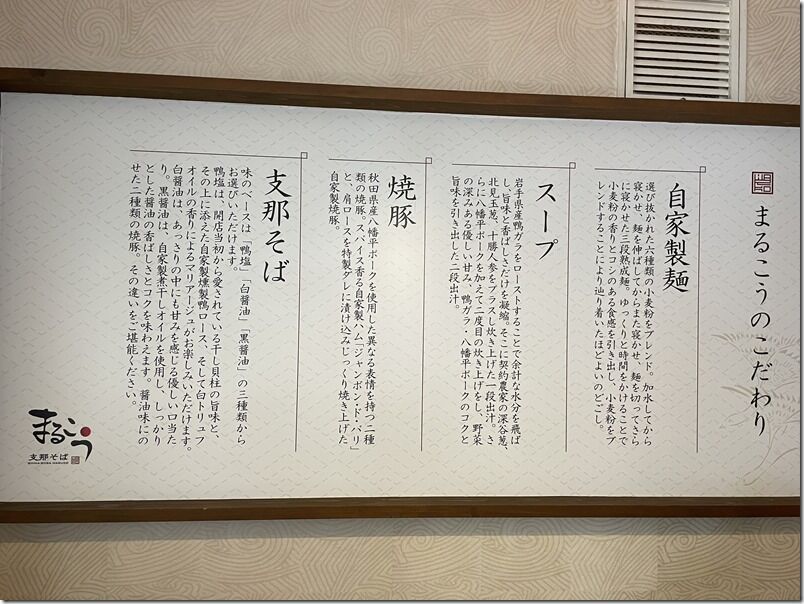 まるこうのこだわり
自家製麺
選び抜かれた六種類の小麦粉をブレンド。加水してから
寝かせ、麺を伸ばしてからまた寝かせ、麺を切ってさら
に寝かせた三段熟成麺。ゆっくりと時間をかけることで
小麦粉の香りとコシのある食感を引き出し、小麦粉をブ
レンドすることにより辿り着いたほどよいのどごし。
スープ
岩手県産鴨ガラをローストすることで余計な水分を飛ば
し、旨味と香ばしさだけを凝縮。そこに契約農家の深谷葱、
北見玉葱、十勝人参をプラスし炊き上げた一段出汁。さ
らに八幡平ポークを加えて二度目の炊き上げをし、野菜
の深みある優しい甘み、鴨ガラ・八幡平ポークのコクと
旨味を引き出した二段出汁。
焼豚
秋田県産八幡平ポークを使用した異なる表情を持つ二種
類の焼豚。スパイス香る自家製ハム「ジャンボン・ド・パリ」
と、肩ロースを特製ダレに漬け込みじっくり焼き上げた
自家製焼豚。
支那そば
味のベースは「鴨塩」「白醤油」「黒醤油」の三種類から
お選びいただけます。
鴨塩は、開店当初から愛されている干し貝柱の旨味と、
その上に添えた自家製燻製鴨ロース、そして白トリュフ
オイルの香りによるマリアージュがお楽しみいただけます。
白醤油は、あっさりの中にも甘みを感じる優しい口当た
り。黒醤油は、自家製煮干しオイルを使用し、しっかり
とした醤油の香ばしさとコクを味わえます。醤油味にの
せた二種類の焼豚。その違いをご堪能ください。
まるこう
支那そば